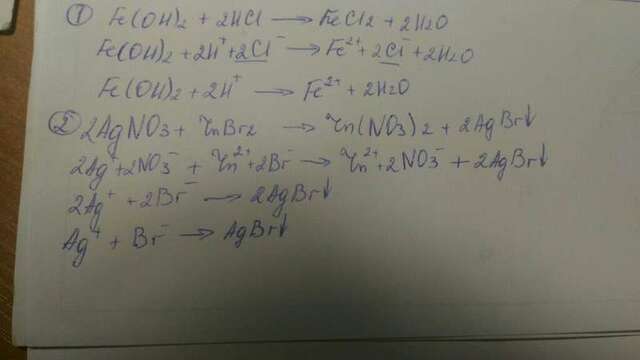 ① Fe(OH)₂ + 2HCl → FeCl₂ + 2H₂O
Fe(OH)₂ + 2H⁺ + 2Cl⁻ → Fe²⁺ + 2Cl⁻ + 2H₂O
Fe(OH)₂ + 2H⁺ → Fe²⁺ + 2H₂O
② 2AgNO₃ + ZnBr₂ → Zn(NO₃)₂ + 2AgBr↓
2Ag⁺ + 2NO₃⁻ + Zn²⁺ + 2Br⁻ → Zn²⁺ + 2NO₃⁻ + 2AgBr↓
2Ag⁺ + 2Br⁻ → 2AgBr↓
Ag⁺ + Br⁻ → AgBr↓